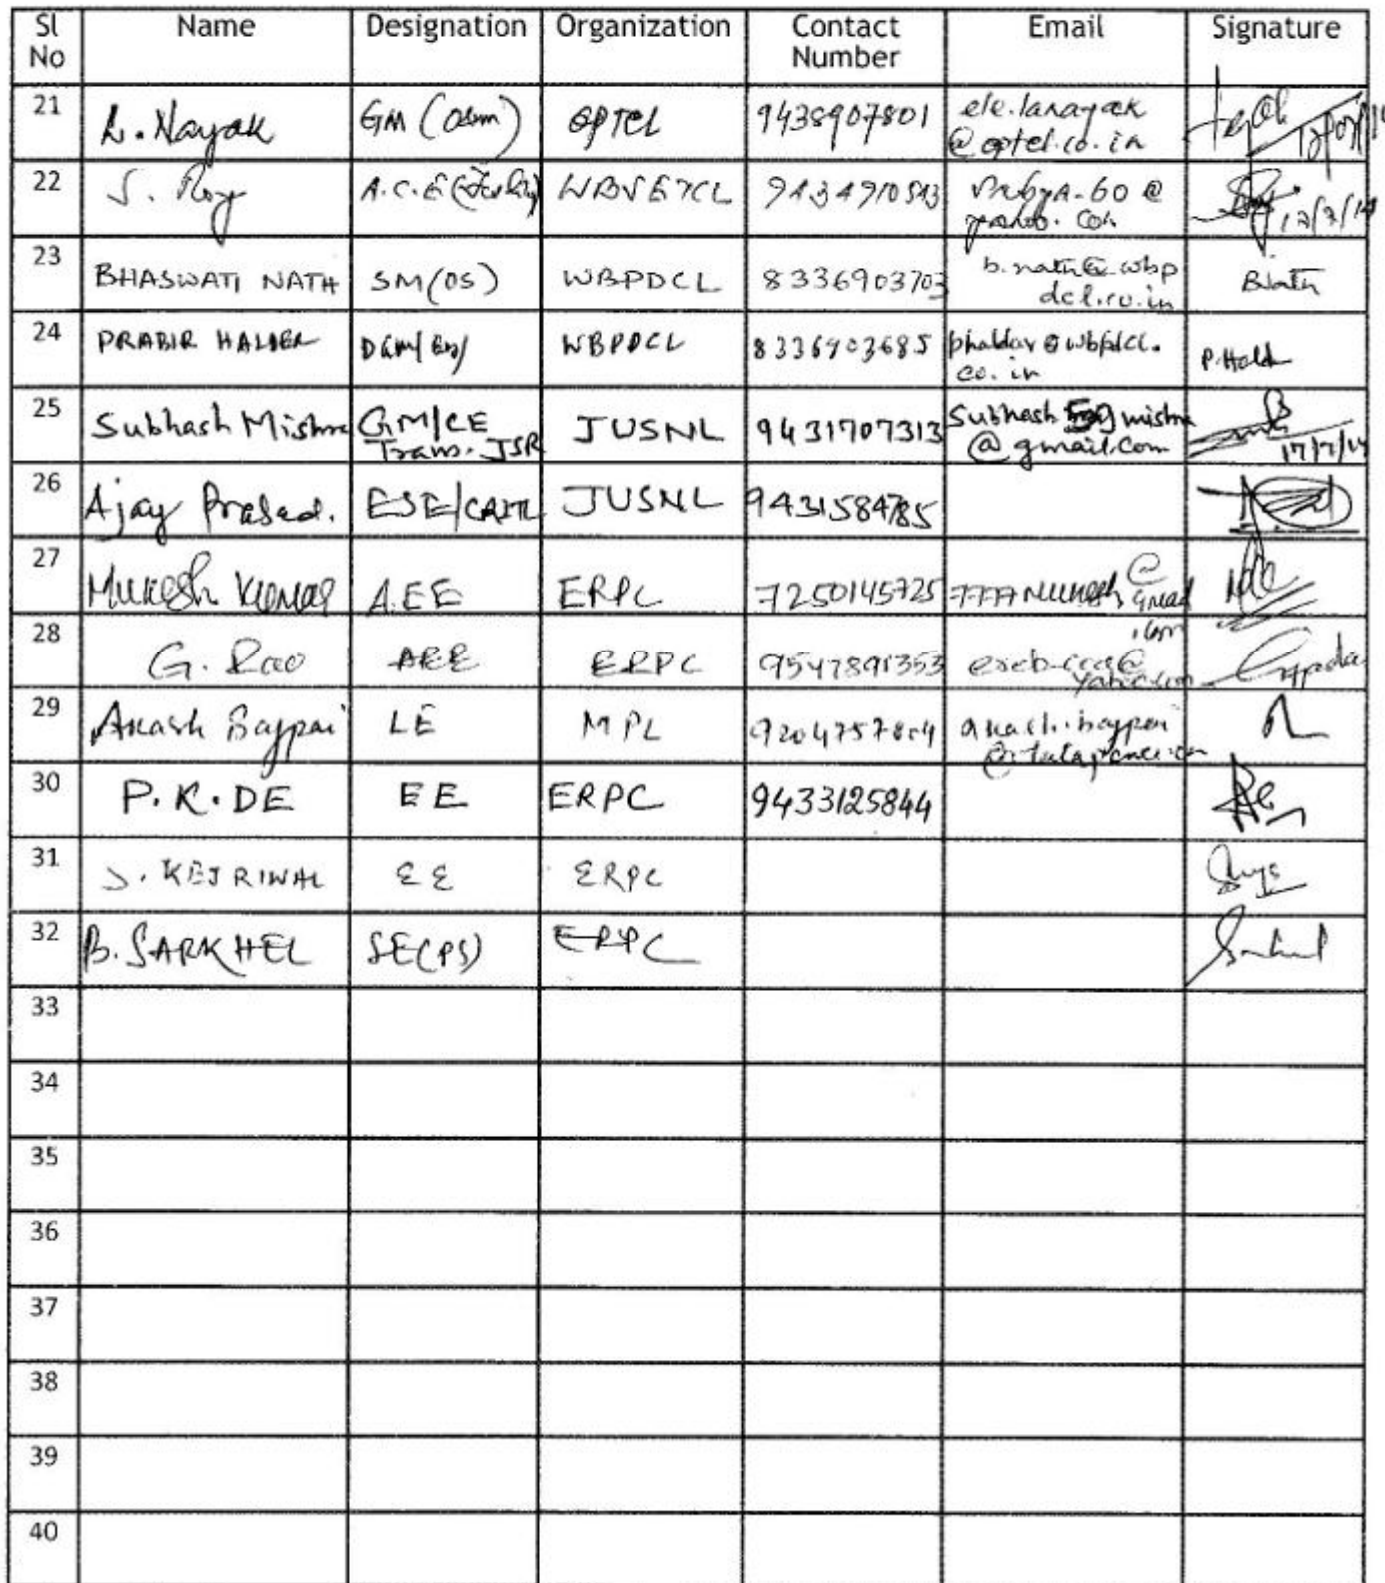 Sl No Name Designation Organization Contact Number Email Signature
21 L. Nayak GM (O&M) OPTCL 9438907801 ele.lanayak @optcl.co.in
22 S. Roy A.C.E WBSETCL
23 BHASWATI NATH SM(OS) WBPDCL 8336903703 b.nath@wbp dcl.co.in B.Nath
24 PRABIR HALDER WBPDCL 8336903685 phaldar@wbpdcl. co.in P.Hald
25 Subhash Mishra GM/CE Trans. JSR JUSNL 9431707313 Subhash mishra @gmail.com 17/7/14
26 Ajay Prasad. ESE/CRITL JUSNL 9431584785
27 Mukesh Kumar AEE ERPC 7250145725 777mukesh @gmail .com
28 G. Rao AEE ERPC 9547891353 ereb_ @yahoo.com
29 Akash Bajpai LE MPL akash.bajpai
30 P.K.DE EE ERPC 9433125844
31 J. KEJRIWAL EE ERPC
32 B. SARKHEL SE(PS) ERPC
33
34
35
36
37
38
39
40